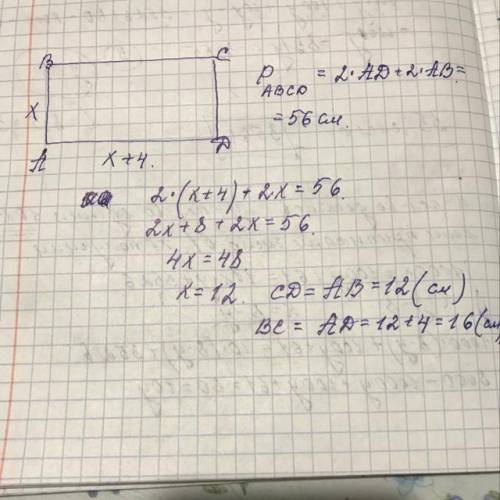 B C
P ABCD = 2·AD+2·AB=
x
= 56 см.
A x+4. D
2·(x+4)+2x=56.
2x+8+2x=56.
4x=48.
x=12. CD=AB=12(см).
BC = AD=12+4=16(см)